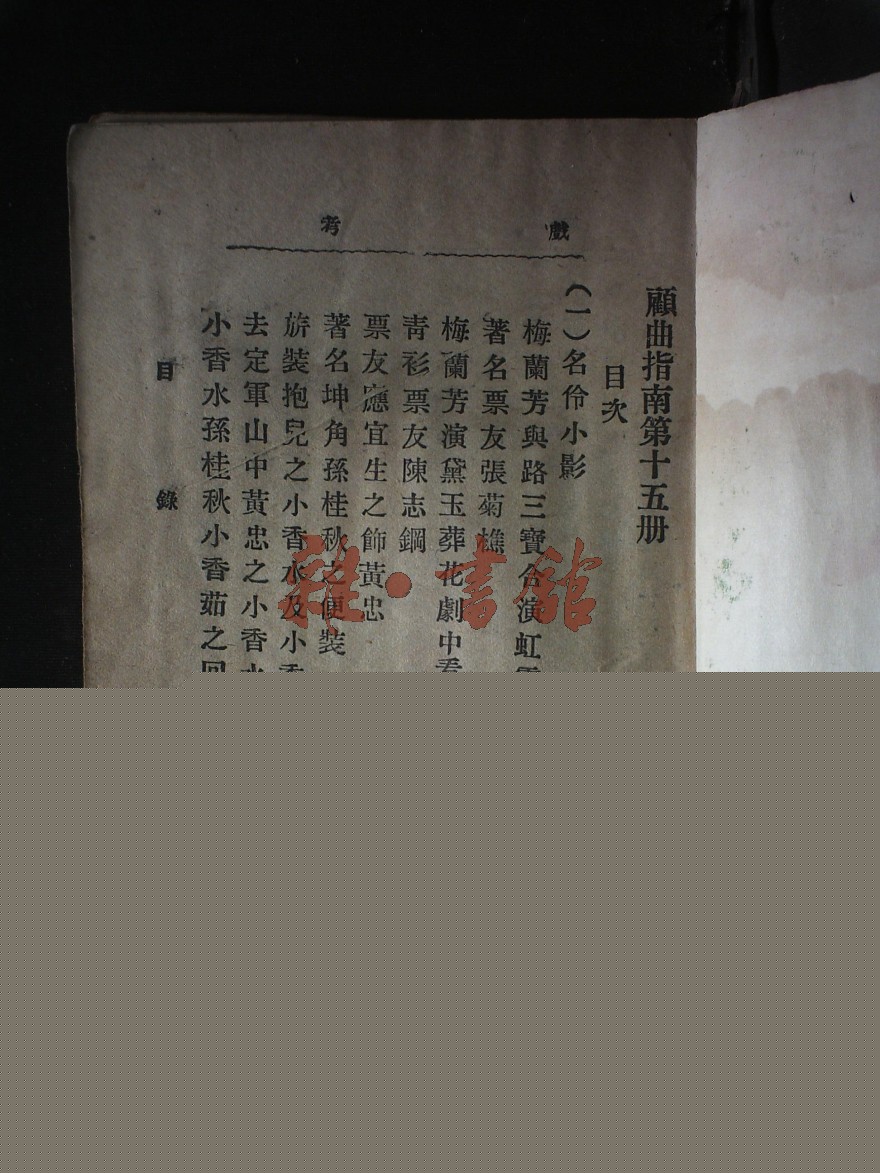 戲考
顧曲指南第十五册
目次
(一)名伶小影
梅蘭芳與路三寶合演虹
著名票友張菊樵
梅蘭芳演黛玉葬花劇中看
青衫票友陳志鋼
票友應宜生之飾黃忠
著名坤角孫桂秋之便裝
旂裝抱兒之小香水及小香
去定軍山中黃忠之小香水
小香水孫桂秋小香茹之
目錄
雜·書館